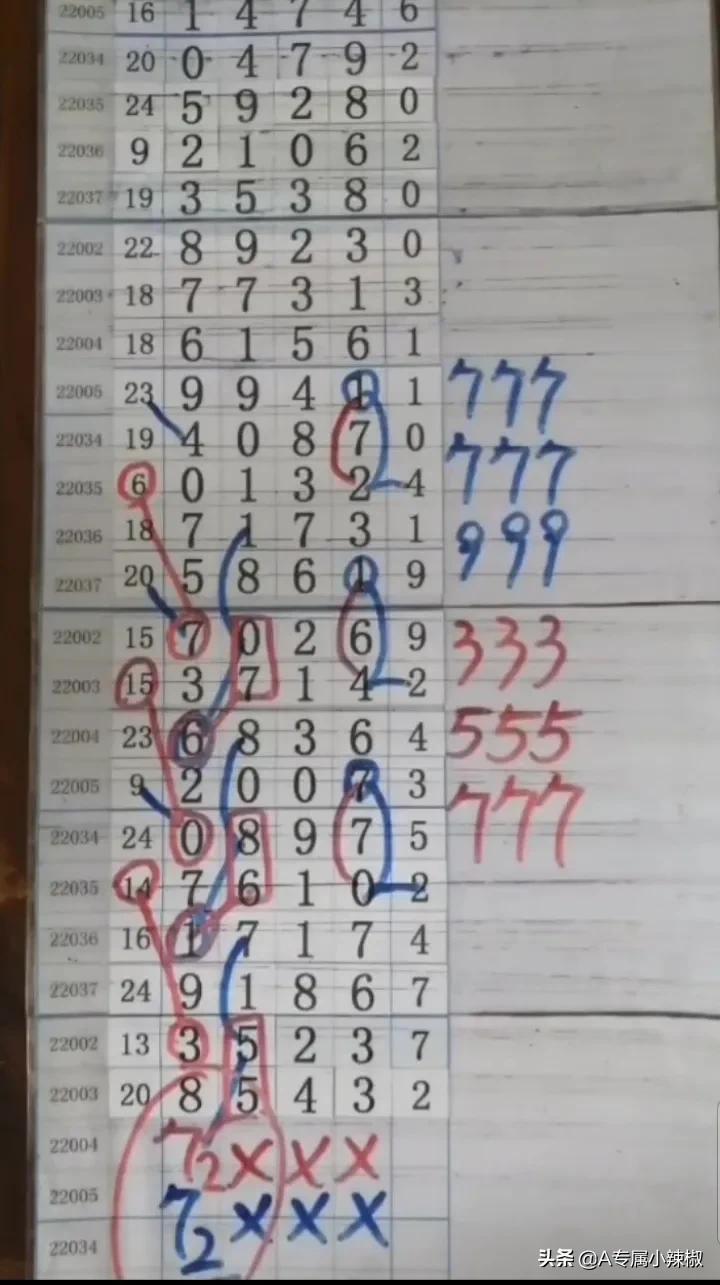 22005 16 1 4 7 4 6
22034 20 0 4 7 9 2
22035 24 5 9 2 8 0
22036 9 2 1 0 6 2
22037 19 3 5 3 8 0
22002 22 8 9 2 3 0
22003 18 7 7 3 1 3
22004 18 6 1 5 6 1
22005 23 9 9 4 1 1 777
22034 19 4 0 8 7 0 777
22035 6 0 1 3 2 4
22036 18 7 1 7 3 1 999
22037 20 5 8 6 1 9
22002 15 7 0 2 6 9 333
22003 15 3 7 1 4 2
22004 23 6 8 3 6 4 555
22005 9 2 0 0 7 3
22034 24 0 8 9 7 5 777
22035 14 7 6 1 0 2
22036 16 1 7 1 7 4
22037 24 9 1 8 6 7
22002 13 3 5 2 3 7
22003 20 8 5 4 3 2
22004 72XXX
22005 72XXX
22034
头条 @A专属小辣椒